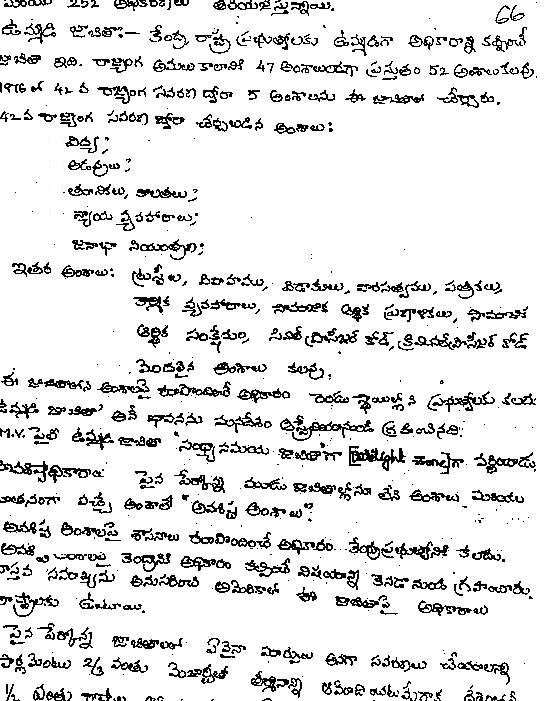 మరియు 252 అధికరణలు తెలియజేస్తున్నాయి.
66
ఉమ్మడి జాబితా:- కేంద్ర, రాష్ట్ర ప్రభుత్వాలకు ఉమ్మడిగా అధికారాన్ని కల్పించే
జాబితా ఇది. రాజ్యాంగ అమలు కాలానికి 47 అంశాలుండగా ప్రస్తుతం 52 అంశాలు కలవు.
1976 లో 42 వ రాజ్యాంగ సవరణ ద్వారా 5 అంశాలను ఈ జాబితాలో చేర్చారు.
42 వ రాజ్యాంగ సవరణ ద్వారా చేర్చబడిన అంశాలు:
విద్య;
అడవులు;
తూనికలు, కొలతలు;
న్యాయ వ్యవహారాలు;
జనాభా నియంత్రణ;
ఇతర అంశాలు: ట్రస్టీలు, వివాహము, విడాకులు, వారసత్వము, పత్రికలు,
కార్మిక వ్యవహారాలు, సామాజిక ఆర్థిక ప్రణాళికలు, సామాజిక
ఆర్థిక సంక్షేమం, సివిల్ ప్రొసీజర్ కోడ్, క్రిమినల్ ప్రొసీజర్ కోడ్
మొదలైన అంశాలు కలవు.
ఈ జాబితాలోని అంశాలపై రూపొందించే అధికారం రెండు స్థాయిల్లోని ప్రభుత్వాలకు కలదు
ఉమ్మడి జాబితా' అనే భావనను మనదేశం ఆస్ట్రేలియా నుండి గ్రహించినది.
M.V. పైలీ ఉమ్మడి జాబితా "సంధ్యా సమయ జాబితా"గా [Twilight] గా వర్ణించాడు.
పైన పేర్కొన్న మూడు జాబితాల్లోనూ లేని అంశాలు మరియు
నూతనంగా వచ్చే అంశాలే "అవశిష్ట అంశాలు".
అవశిష్ట అంశాలపై శాసనాలు రూపొందించే అధికారం కేంద్రప్రభుత్వానికే కలదు.
అవశిష్ట అంశాలపై కేంద్రానికి అధికారం కల్పించే విషయాన్ని కెనడా నుండి గ్రహించారు.
వాస్తవ సమాఖ్యను అనుసరించి అమెరికాలో ఈ జాబితాపై అధికారాలు
రాష్ట్రాలకు ఉంటాయి.
పైన పేర్కొన్న జాబితాలలో ఏవైనా మార్పులు లేదా సవరణలు చేయాలన్న
పార్లమెంటు 2/3 వంతు మెజార్టీతో తీర్మానాన్ని ఆమోదించటమేగాక
1/2 వంతు రాష్ట్రాలు